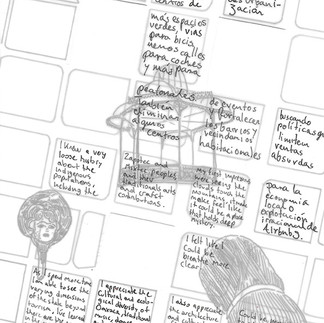 centros de
des urbani-
zación
más espacios
verdes, vías
para bicis,
menos calles
para coches
y más para
peatonales.
También
eliminaría
algunos
centros
de eventos
y fortalecer
los barrios y
vecindarios
habitacionales
buscando
políticas que
limiten
ventas
absurdas
para la
economía
local o
explotación
irracional de
Airbnb.
I know a very
loose history
about the
indigenous
populations,
including the
Zapotec and
Mixtec peoples
and their
traditional arts
and craft
contributions.
My first impression
were seeing the
clouds over the
mountains, it
made me feel like
it could be a place
that holds deep
mystery.
I felt like I
could
breathe more
clear
As I spend more time
I am able to see the
varying dimensions
of the state beyond
tourism, I've learned
there are
I appreciate the
cultural and ecolo-
gical diversity of
Oaxaca, traditional
music, dance
I also appreciate
the architecture
and